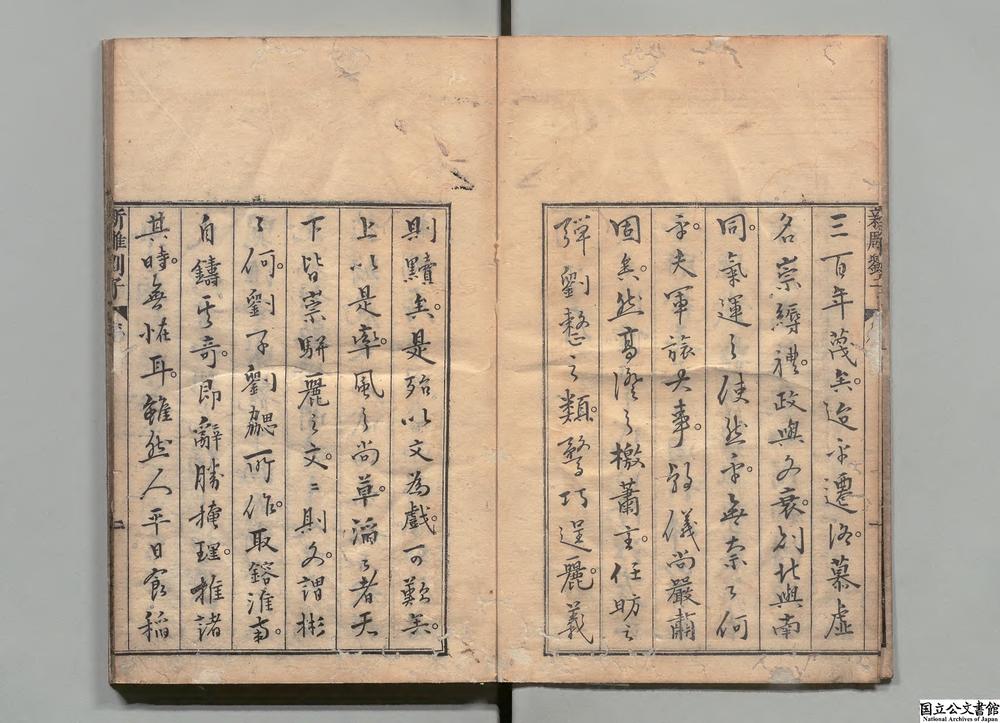 三百年蔑矣。迨乎遷洛。慕虛
名崇縟禮。政與文衰。別北與南
同。氣運之使然乎。無奈之何
乎。夫軍旅大事。移儀尚嚴肅
固矣。然高澄之檄蕭主。任昉之
彈劉整之類。騖巧逞麗。義
則黷矣。是殆以文為戲。可歎矣。
上以是率。風之尚草。滔〻者天
下皆崇駢麗之文。〻則文。謂彬
〻何。劉子劉勰所作。取鎔淮南。
自鑄其奇。即辭勝掩理。推諸
其時。無怪耳。雖然人平日食稻
新雕劉子
二
国立公文書館
National Archives of Japan